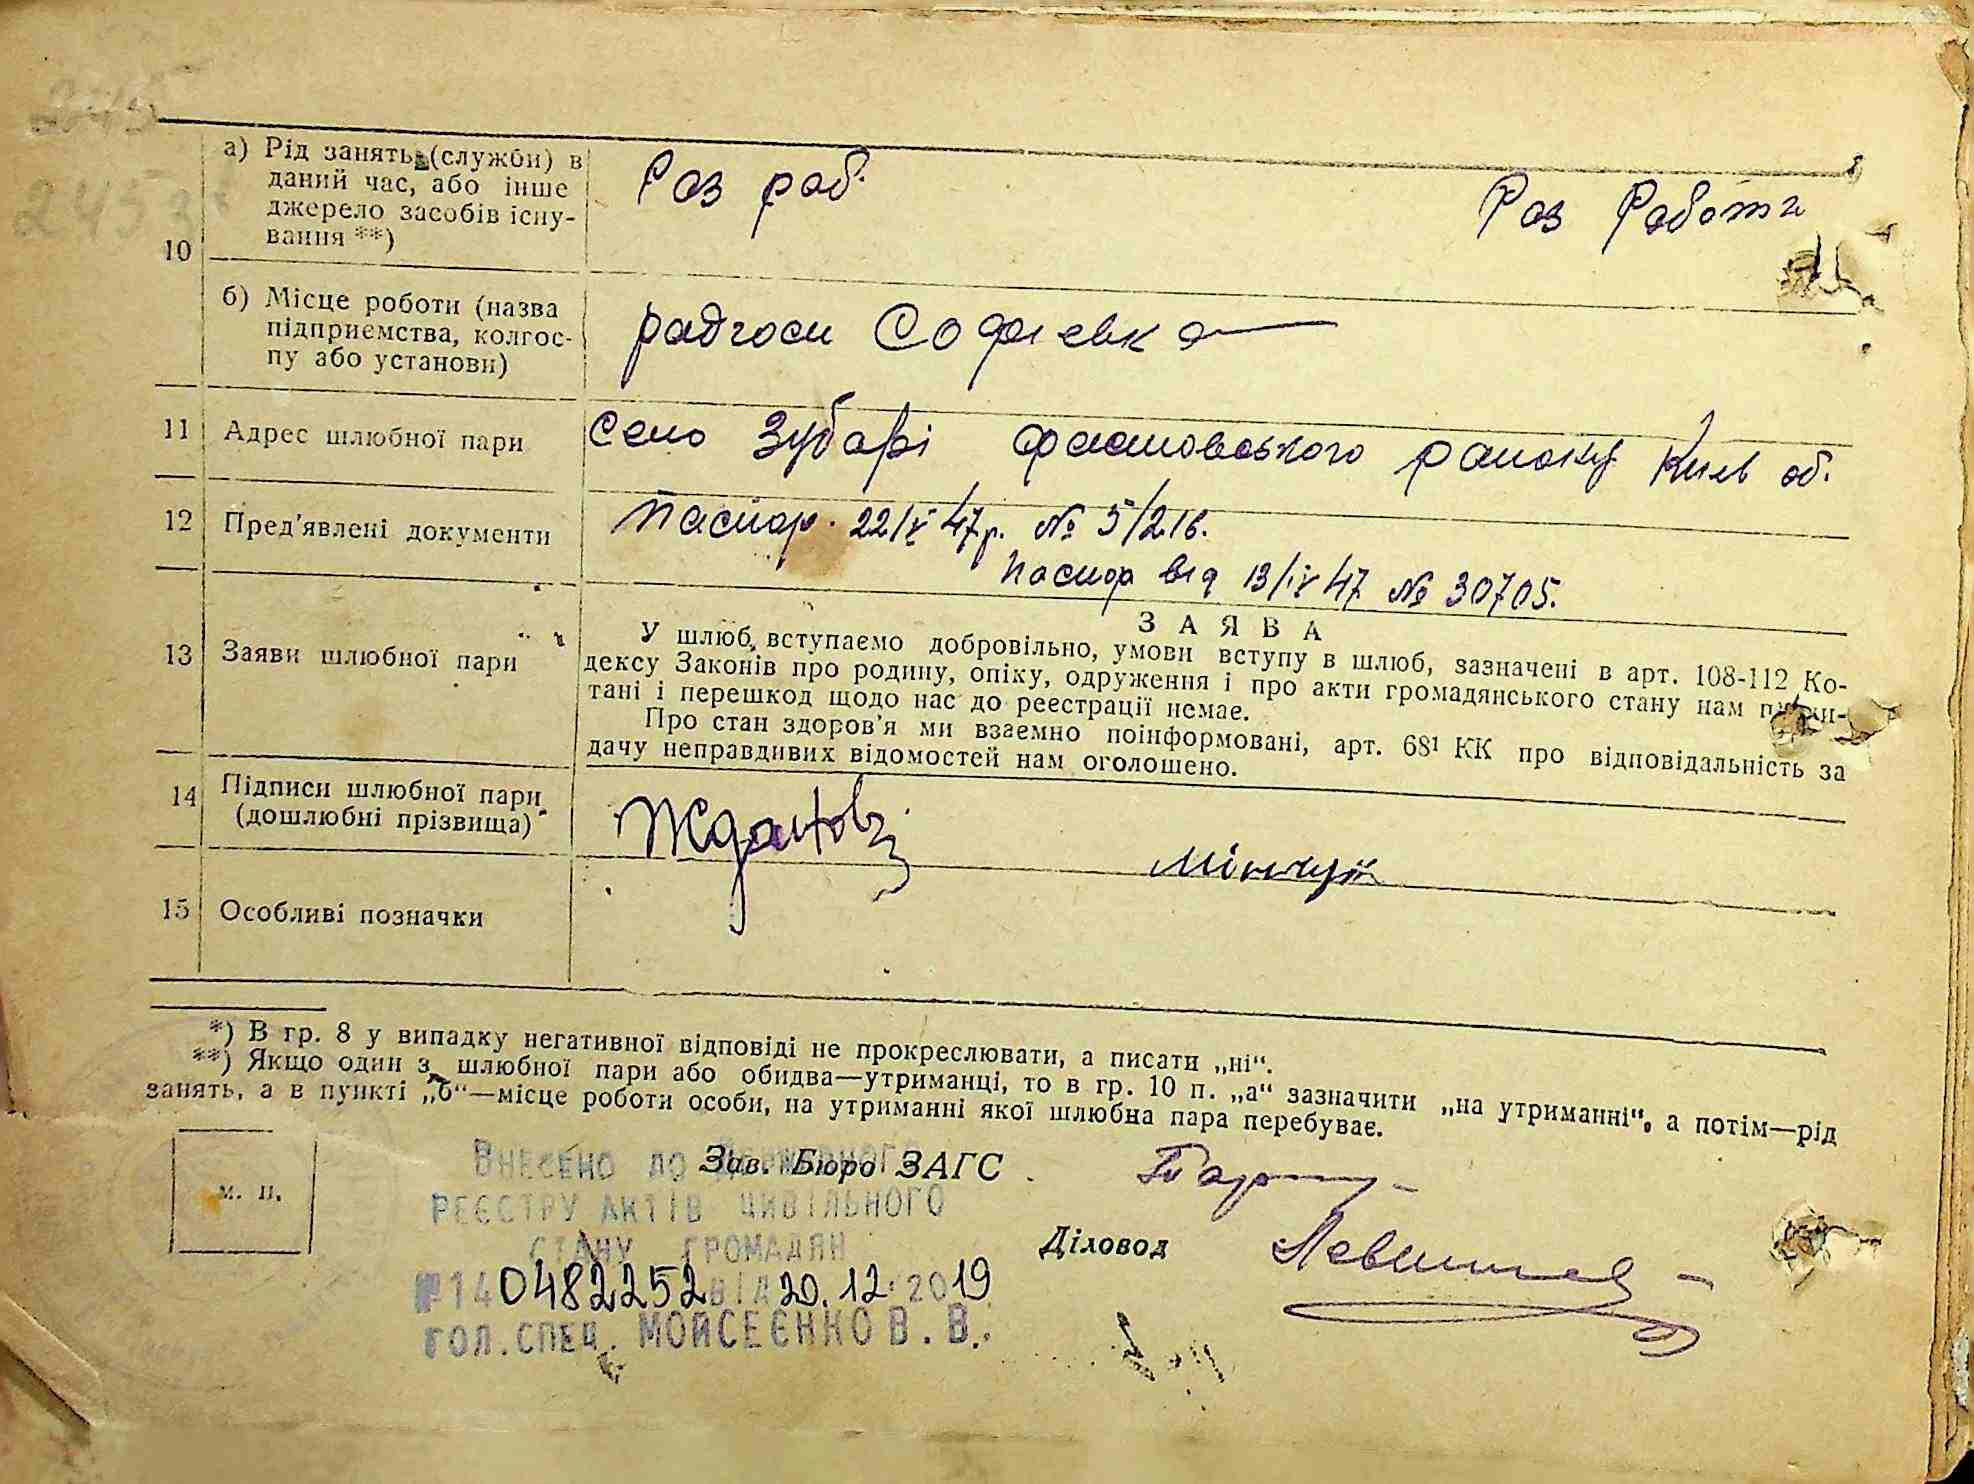 2445
245
10
а) Рід занять (служби) в
даний час, або інше
джерело засобів існу-
вання **)
Раз раб.
Раз Работи
б) Місце роботи (назва
підприємства, колгос-
пу або установи)
радгосп Софієвка
11
Адрес шлюбної пари
Село Зубарі Фастовського району Київ об.
12
Пред'явлені документи
Паспор. 22/V 47р. № 5/216.
Паспор від 13/IV 47 № 30705.
13
Заяви шлюбної пари
ЗАЯВА
У шлюб вступаємо добровільно, умови вступу в шлюб, зазначені в арт. 108-112 Ко-
дексу Законів про родину, опіку, одруження і про акти громадянського стану нам
тані і перешкод щодо нас до реєстрації немає.
Про стан здоров'я ми взаємно поінформовані, арт. 68¹ КК про відповідальність за
дачу неправдивих відомостей нам оголошено.
14
Підписи шлюбної пари
(дошлюбні прізвища)
Жданов
Мінчук
15
Особливі позначки
*) В гр. 8 у випадку негативної відповіді не прокреслювати, а писати „ні“.
**) Якщо один з шлюбної пари або обидва—утриманці, то в гр. 10 п. „а“ зазначити „на утриманні“, а потім—рід
занять, а в пункті „б“—місце роботи особи, на утриманні якої шлюбна пара перебуває.
м. п.
Зав. Бюро ЗАГС
Діловод
Внесено до Державного
реєстру актів цивільного
стану громадян
№140482252 від 20.12.2019
гол.спец. Мойсеєнко В.В.